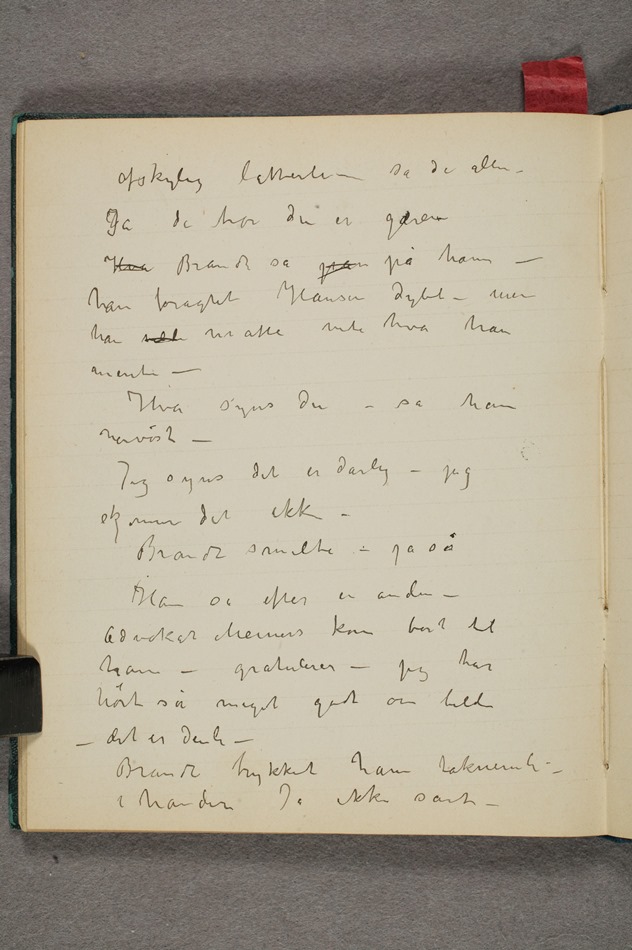 afskylig latterli— sa de alle—
Ja de tror du er gæren
Hva Brandt sa fra på ham —
han foragtet Hansen dybt — men
han måtte vite hva han
mente —
Hva syns du — sa han
nervöst —
Jeg syns det er darlig — jeg
skjønner det ikke —
Brandt smilte — ja så
Han så efter en anden —
Advokat Meiners kom bort til
ham — gratulerer — jeg har
hört så meget godt om billedet
— det er deili —
Brandt trykket ham taknemli —
i handen Ja ikke sant —